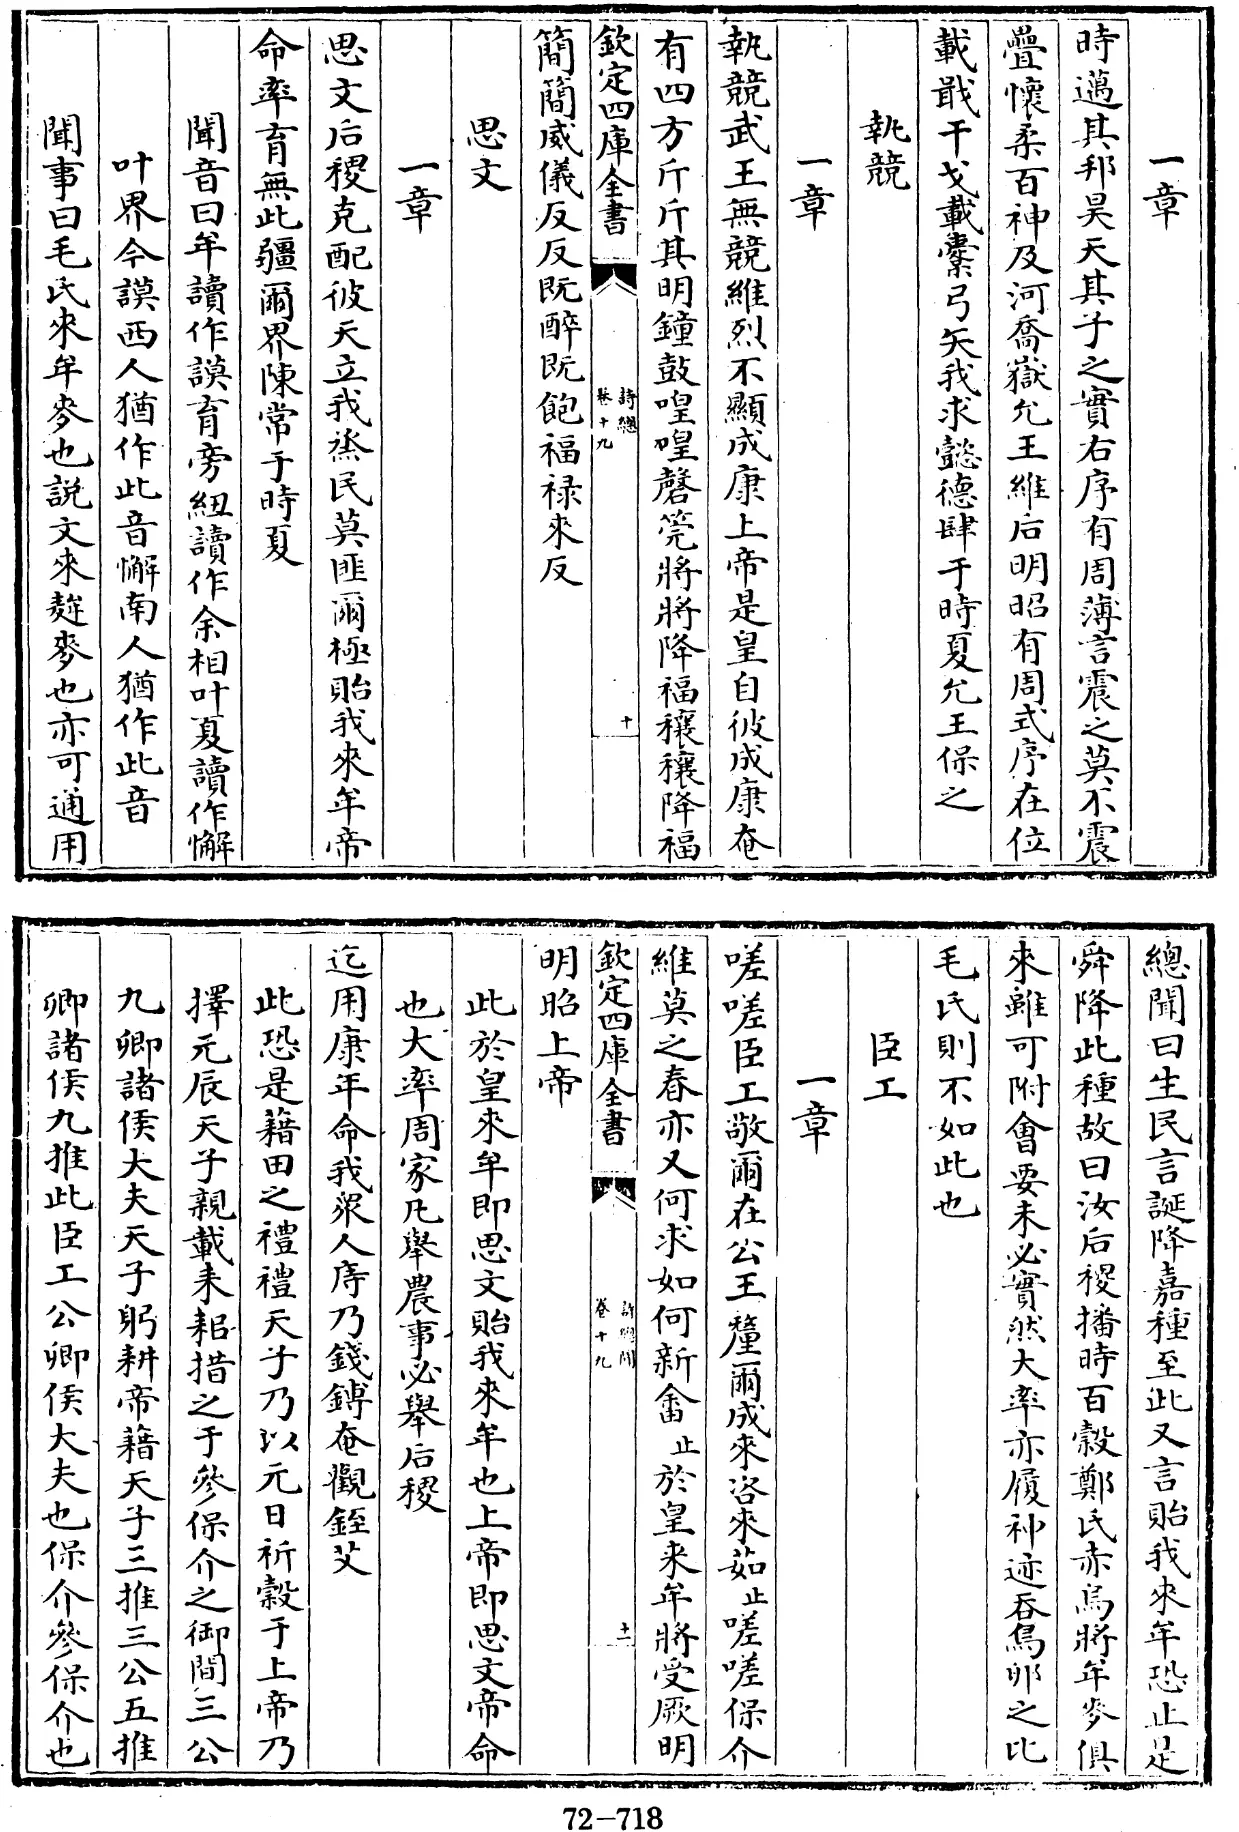 一章
時邁其邦昊天其子之實右序有周薄言震之莫不震
疊懷柔百神及河喬嶽允王維后明昭有周式序在位
載戢干戈載櫜弓矢我求懿德肆于時夏允王保之
執競
一章
執競武王無競維烈不顯成康上帝是皇自彼成康奄
有四方斤斤其明鐘鼓喤喤磬筦將將降福穰穰降福
欽定四庫全書
詩總
卷十九
十
簡簡威儀反反既醉既飽福禄來反
思文
一章
思文后稷克配彼天立我烝民莫匪爾極貽我來牟帝
命率育無此疆爾界陳常于時夏
聞音曰牟讀作謨育旁紐讀作余相叶夏讀作懈
叶界今謨西人猶作此音懈南人猶作此音
聞事曰毛氏來牟麥也説文來麰麥也亦可通用
總聞曰生民言誕降嘉種至此又言貽我來牟恐止是
舜降此種故曰汝后稷播時百穀鄭氏赤烏將牟麥俱
來雖可附會要未必實然大率亦履神迹吞鳥卵之比
毛氏則不如此也
臣工
一章
嗟嗟臣工敬爾在公王釐爾成來咨來茹止嗟嗟保介
維莫之春亦又何求如何新畬止於皇來牟將受厥明
欽定四庫全書
詩總聞
卷十九
十一
明昭上帝
此於皇來牟即思文貽我來牟也上帝即思文帝命
也大率周家凡舉農事必舉后稷
迄用康年命我衆人庤乃錢鎛奄觀銍艾
此恐是藉田之禮禮天子乃以元日祈穀于上帝乃
擇元辰天子親載耒耜措之于參保介之御間三公
九卿諸侯大夫天子躬耕帝藉天子三推三公五推
卿諸侯九推此臣工公卿侯大夫也保介參保介也
72-718